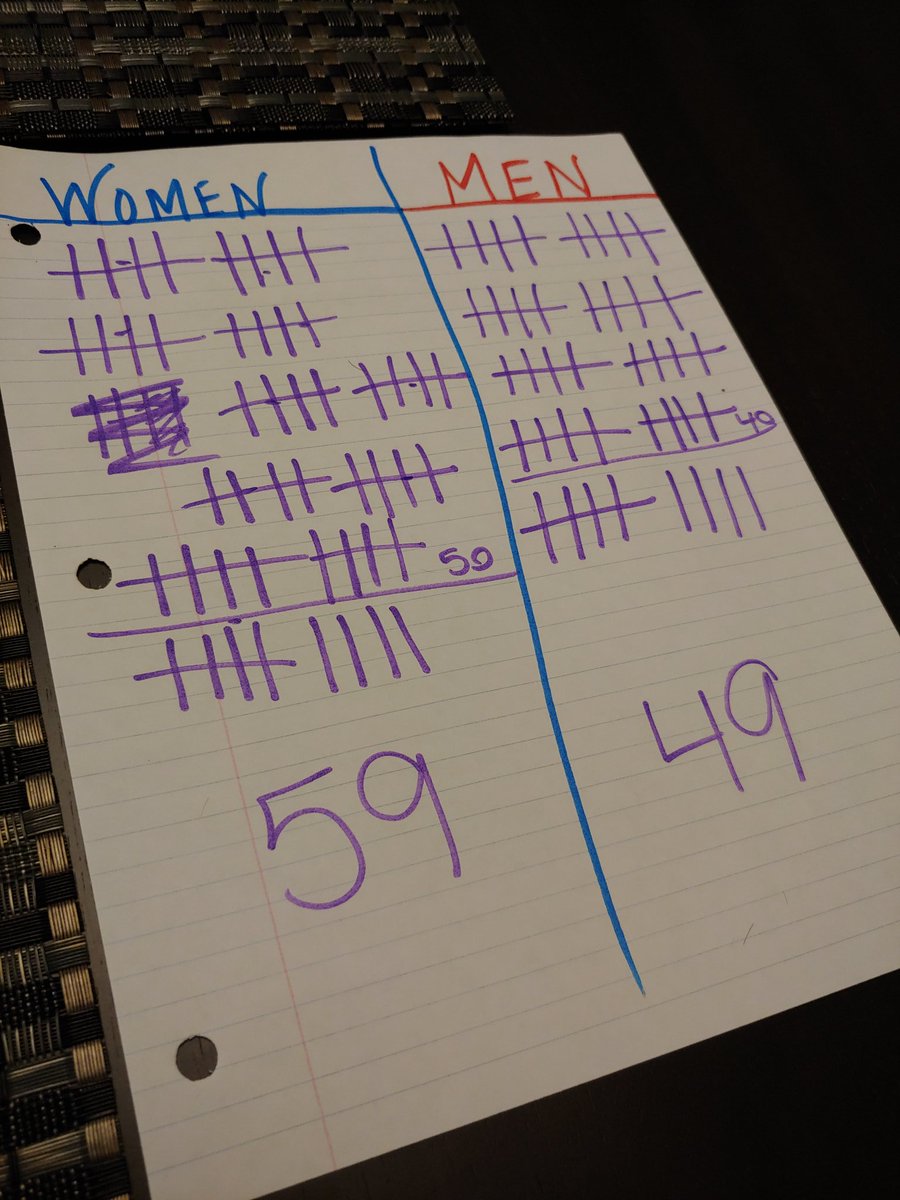 WOMEN MEN
40
50
59 49